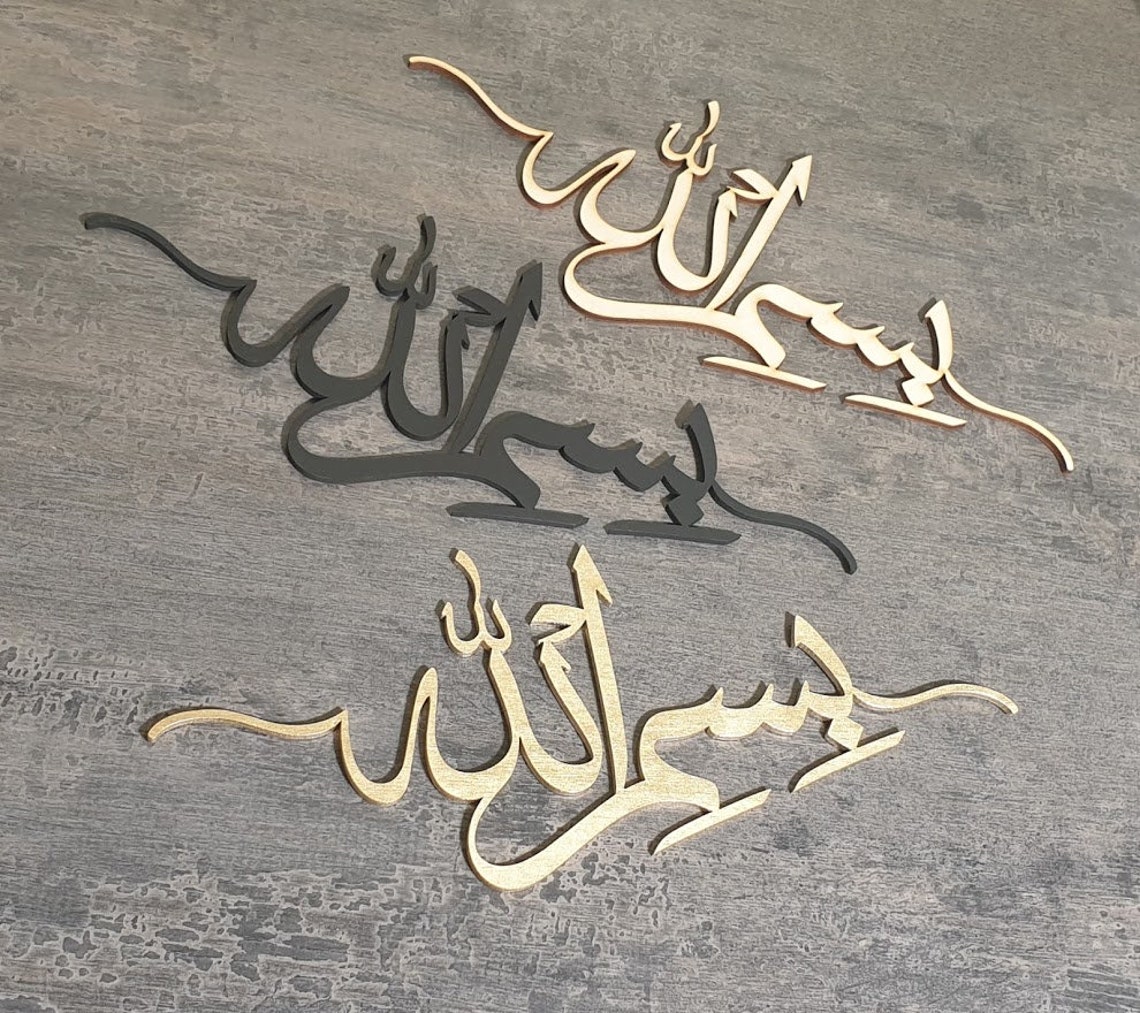 بِسمِ اللّٰه
بِسمِ اللّٰه
بِسمِ اللّٰه